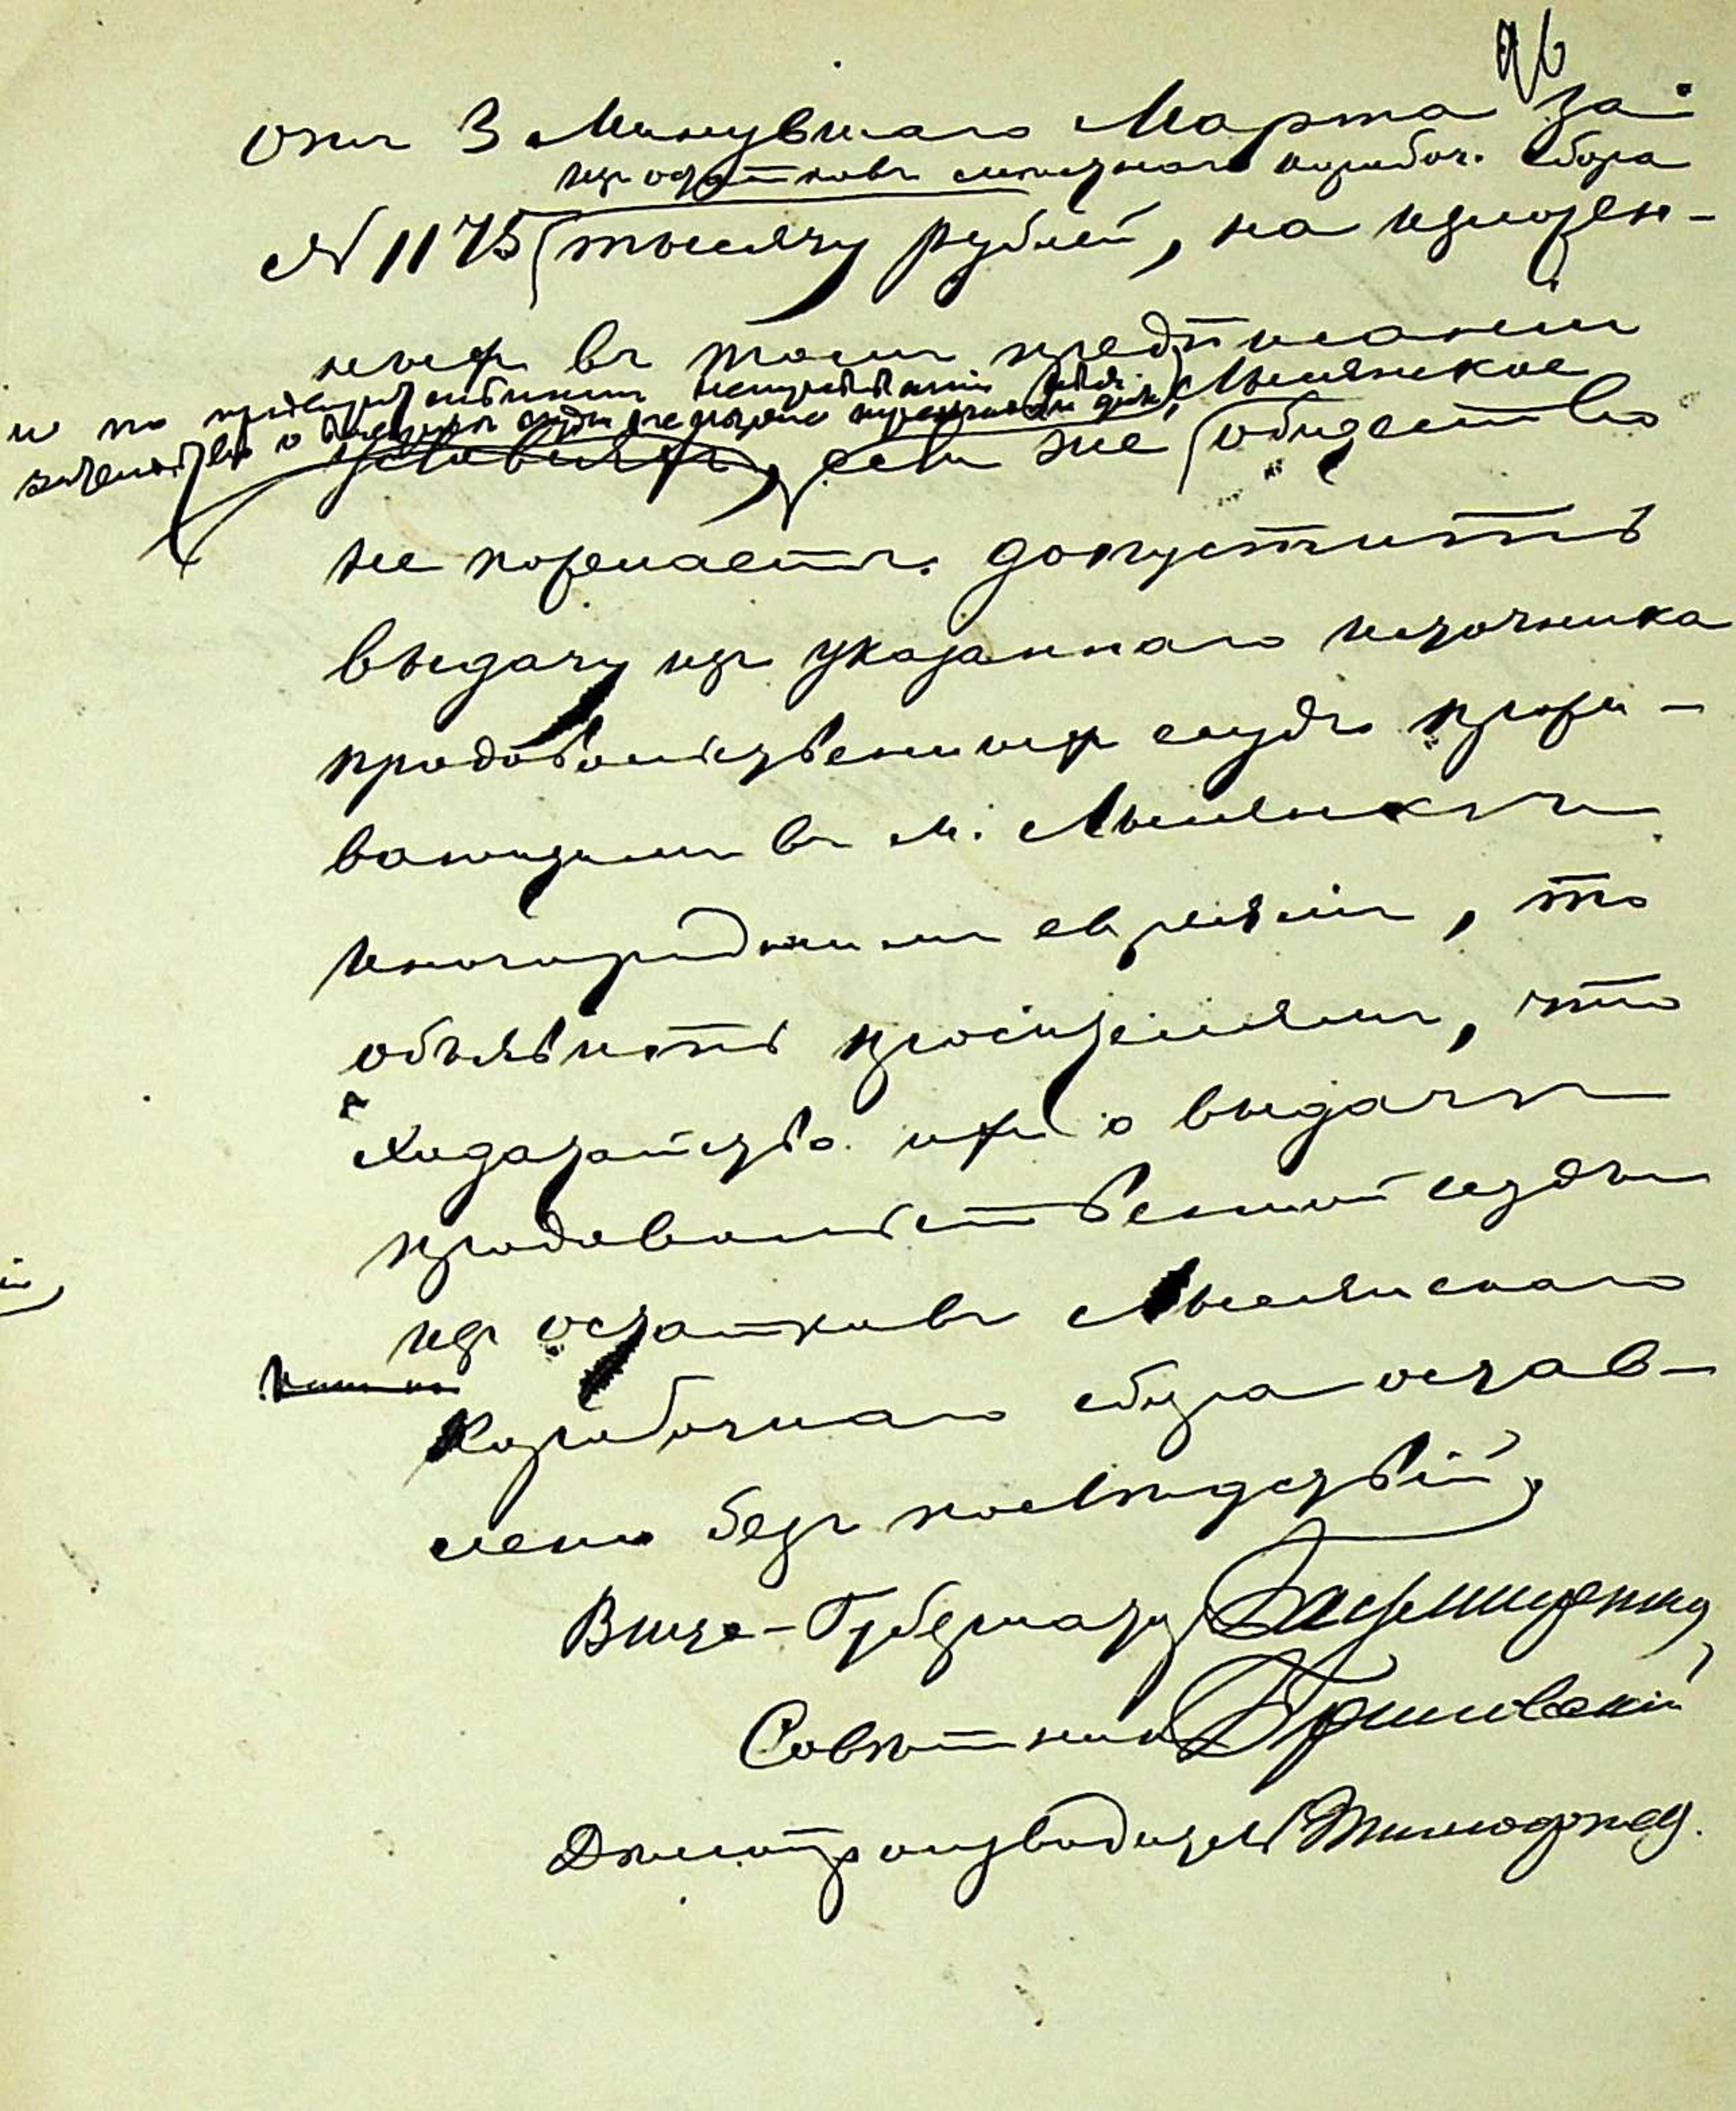 96
отъ 3 Минувшаго Марта за
изъ остатковъ мѣстнаго коробоч. сбора
№ 1175 тысячу рублей, на изложен-
ныхъ въ томъ предписаніи
и по предварительномъ
о ссудѣ
условіяхъ, если же Лысянское общество
не пожелаетъ допустить
выдачу изъ указаннаго источника
продовольственныхъ ссудъ прожи-
вающимъ въ м. Лысянкѣ
иногороднимъ евреямъ, то
объявить просителямъ, что
ходатайство ихъ о выдачѣ
продовольственной ссуды
изъ остатковъ Лысянскаго
Коробочнаго сбора остав-
лено безъ послѣдствій.
Вице-Губернаторъ
Совѣтникъ
Дѣлопроизводитель